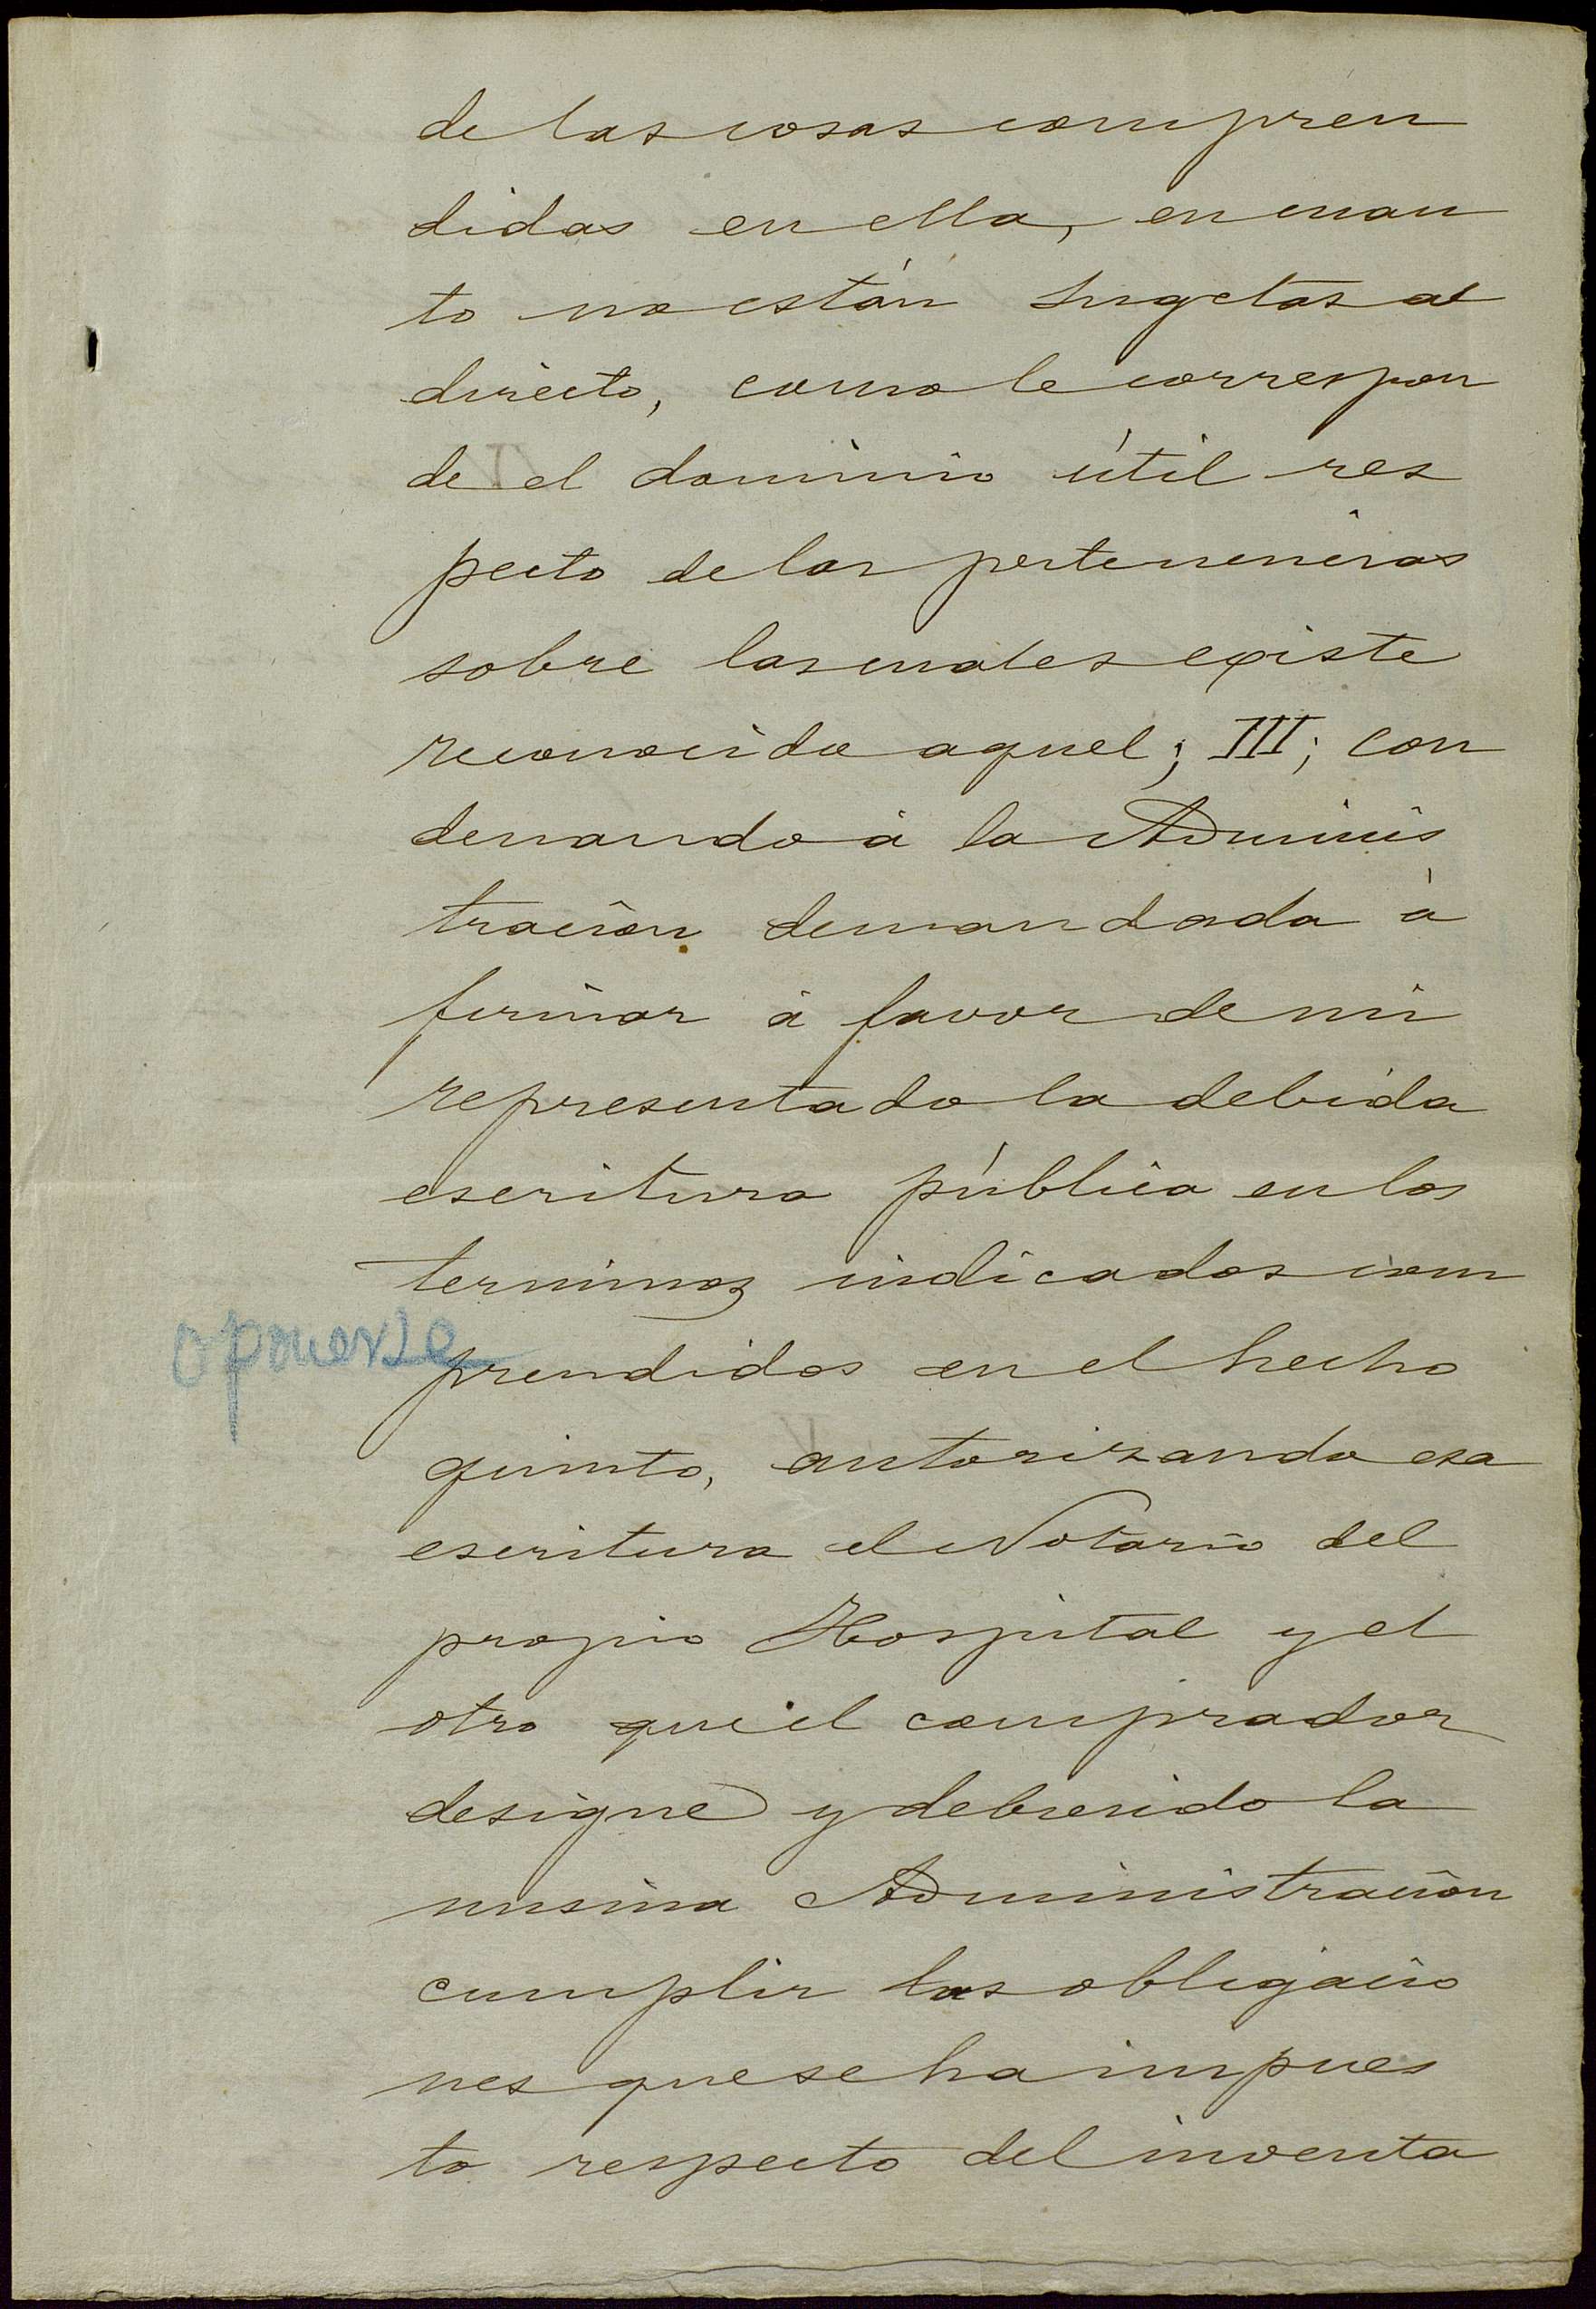 de las cosas compren
didas en ella, en cuan
to no están sugetas al
directo, como le correspon
de el dominio útil res
pecto de las pertenencias
sobre las cuales existe
reconocido aquel; III; con
denando á la Adminis
tración demandada á
firmar á favor de mi
representado la debida
escritura pública en los
terminos indicados com
oponerse
prendidos en el hecho
quinto, autorizando esa
escritura el Notario del
propio Hospital y el
otro que el comprador
designe y debiendo la
misma Administración
cumplir las obligacio
nes que se ha impues
to respecto del inventa